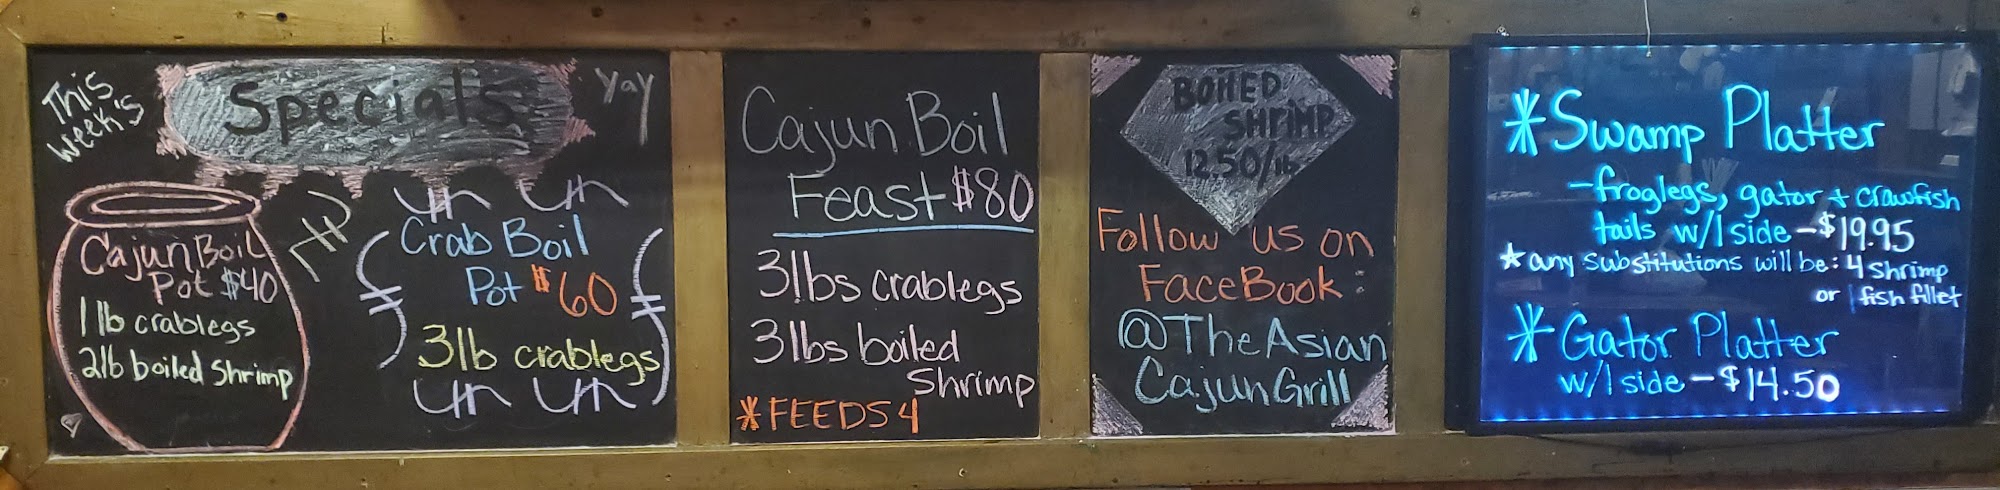 This
Week's
Specials
Yay
Cajun Boil
Pot $40
1 lb crablegs
2lb boiled Shrimp
Crab Boil
Pot $60
3lb crablegs
Cajun Boil
Feast $80
3lbs crablegs
3lbs boiled
Shrimp
*FEEDS 4
BOILED
SHRIMP
12.50/lb
Follow us on
FaceBook:
@TheAsian
CajunGrill
*Swamp Platter
-froglegs, gator + crawfish
tails w/1 side -$19.95
*any substitutions will be: 4 shrimp
or 1 fish fillet
*Gator Platter
w/1 side -$14.50